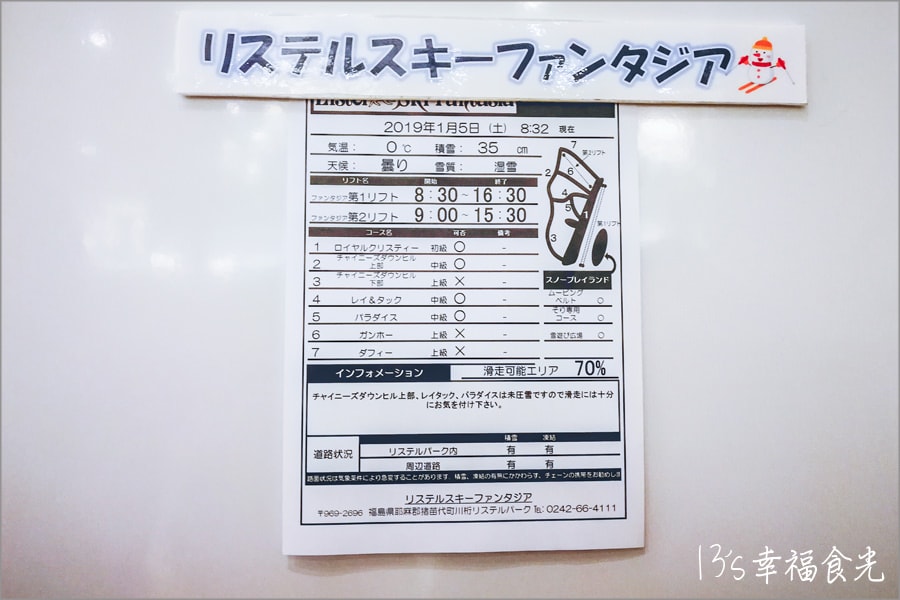 リステルスキーファンタジア
Listel Ski Fantasia
2019年1月5日（土） 8:32 現在
気温： 0℃ 積雪： 35 cm
天候： 曇り 雪質： 湿雪
リフト名 開始 終了
ファンタジア第1リフト 8：30～16：30
ファンタジア第2リフト 9：00～15：30
コース名 可否 備考
1 ロイヤルクリスティー 初級 ○ -
2 チャイニーズダウンヒル上部 中級 ○ -
3 チャイニーズダウンヒル下部 上級 × -
4 レイ＆タック 中級 ○ -
5 パラダイス 中級 ○ -
6 ガンホー 上級 × -
7 ダフィー 上級 × -
7 第2リフト
2 6
4
5 1 第1リフト
3
スノープレイランド
ムービングベルト ○
そり専用コース ○
雪遊び広場 ○
インフォメーション 滑走可能エリア 70%
チャイニーズダウンヒル上部、レイタック、パラダイスは未圧雪ですので滑走には十分
にお気を付け下さい。
積雪 凍結
道路状況 リステルパーク内 有 有
周辺道路 有 有
路面状況は気象条件により急変することがあります。積雪、凍結の有無にかかわらず、チェーンの携帯をお勧めしま
リステルスキーファンタジア
〒969-2696 福島県耶麻郡猪苗代町川桁リステルパーク ℡ 0242-66-4111
13's幸福食光